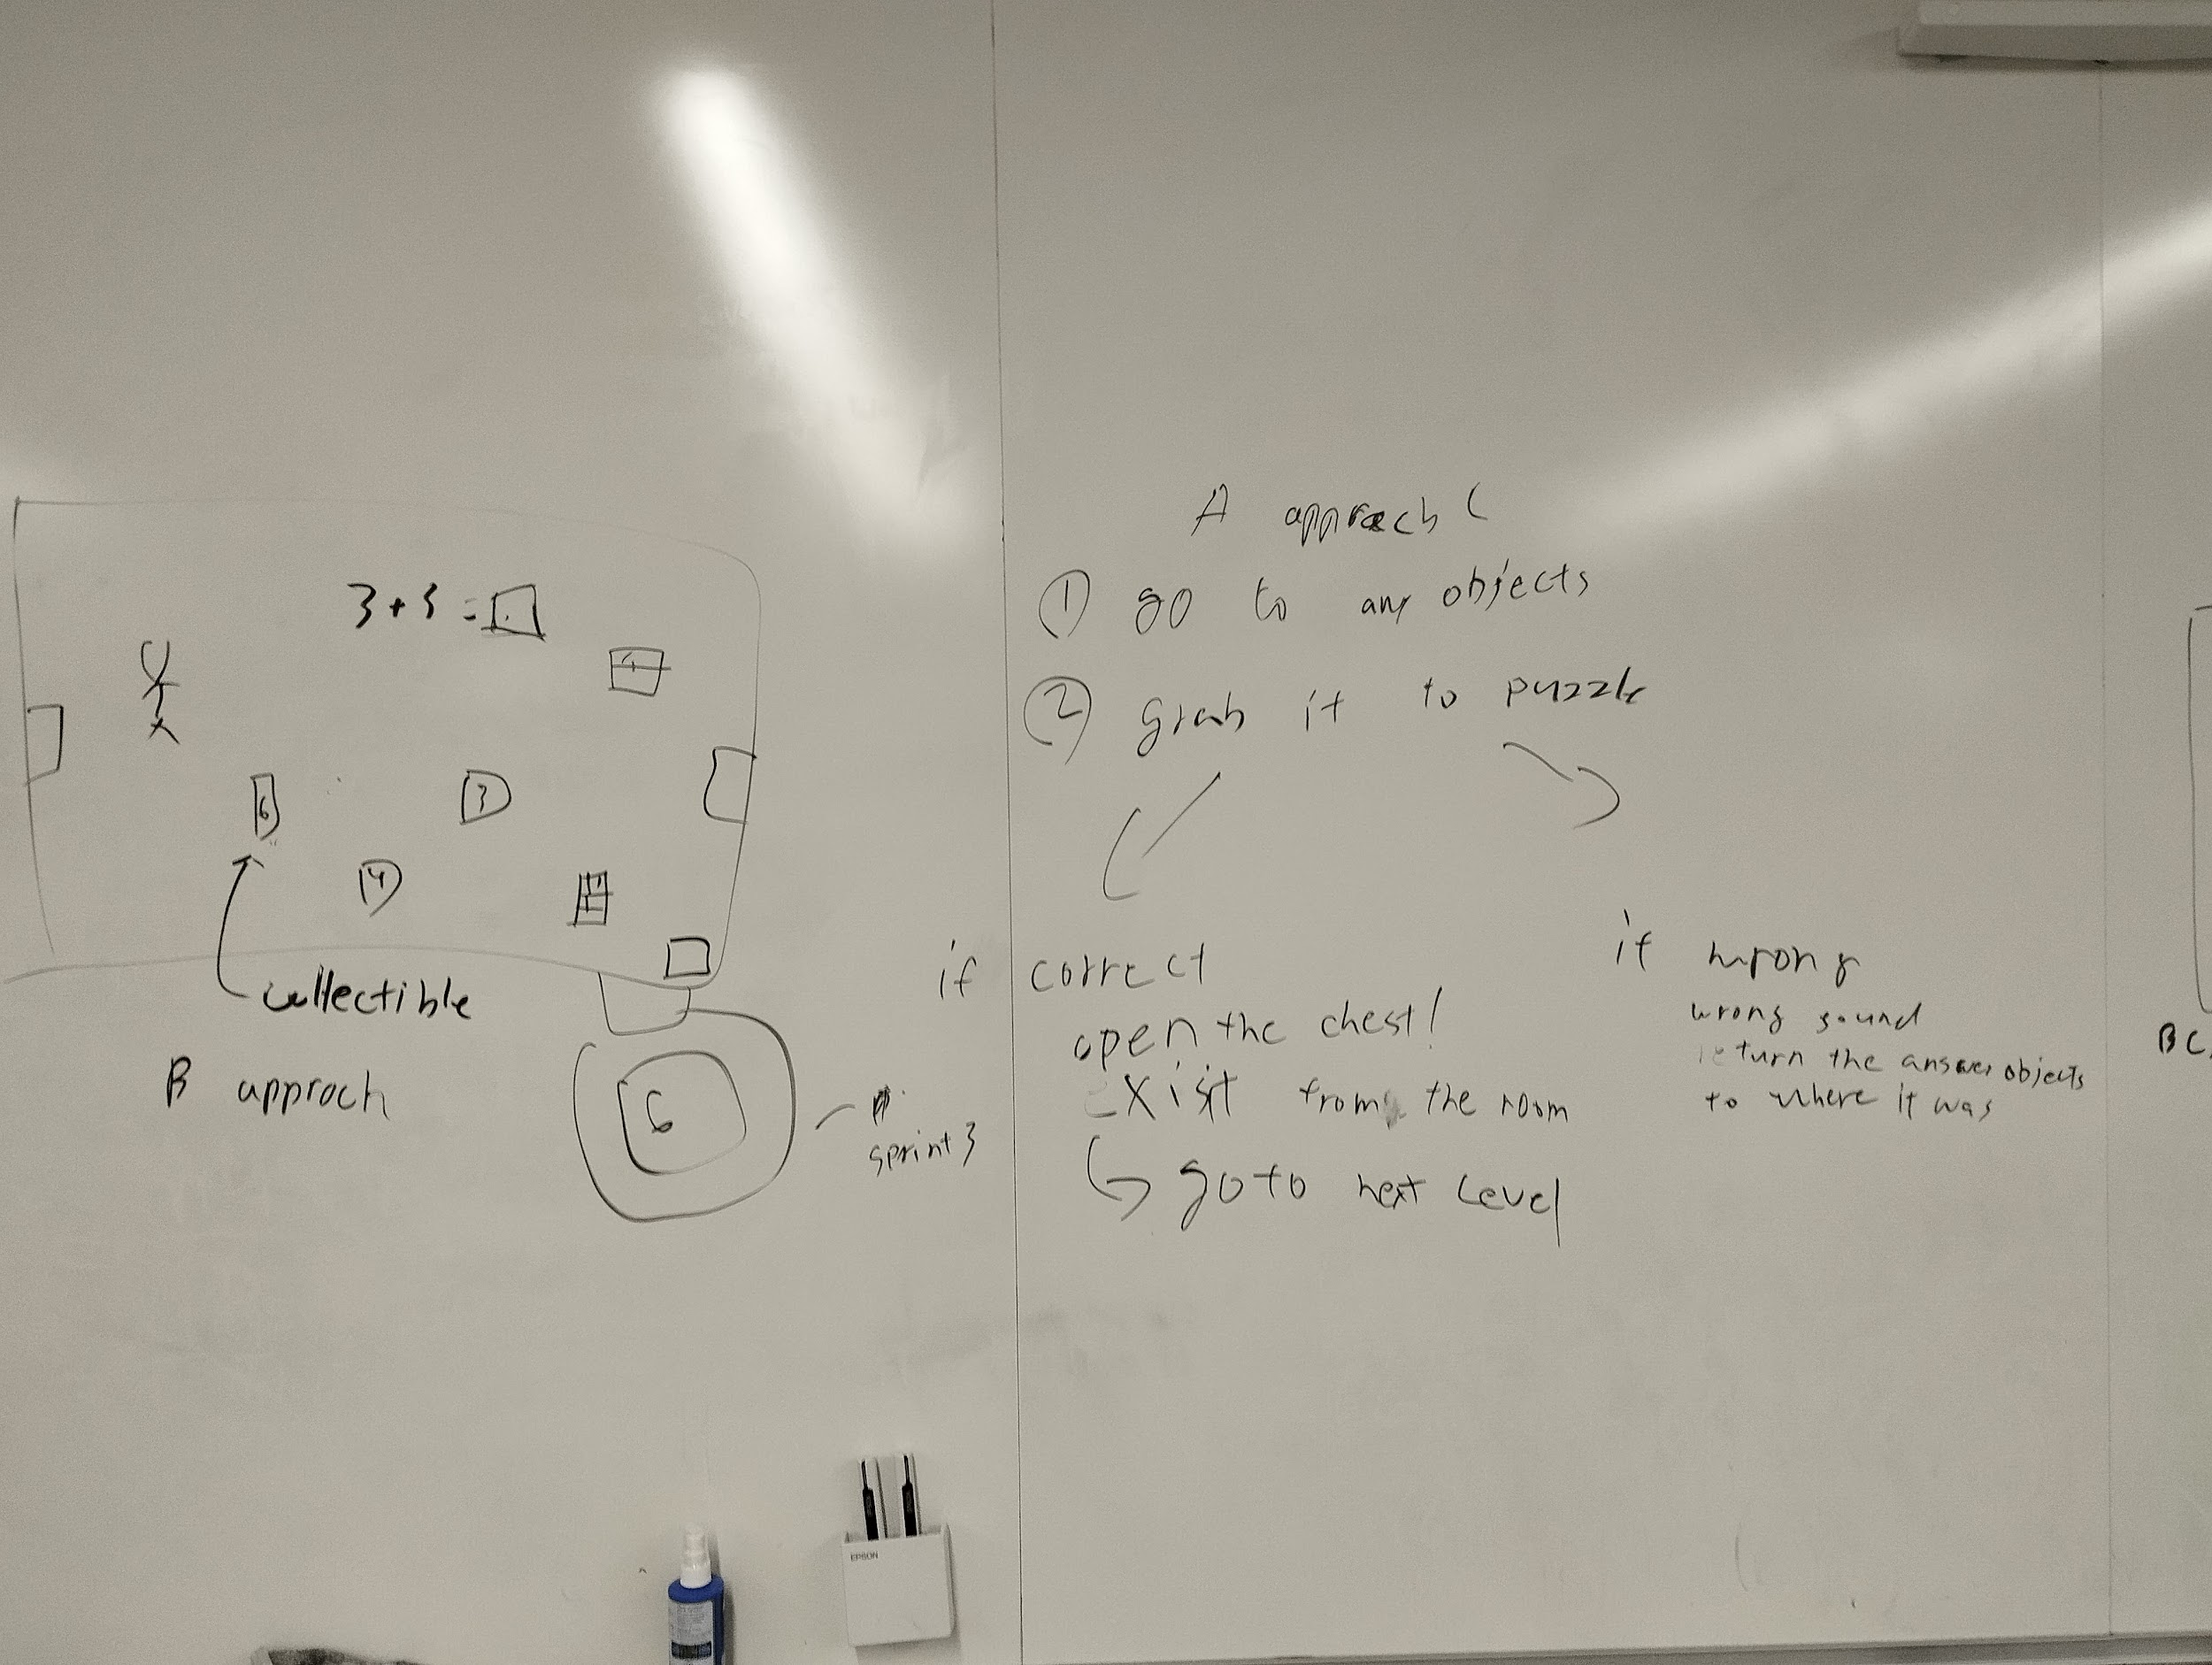 3 + 3 =
6
3
4
collectible
B approch
6
sprint 3
A approach (
① go to any objects
② grab it to puzzle
if correct
open the chest!
Exisit from the room
go to next level
if wrong
wrong sound
return the answer objects
to where it was
BC
EPSON